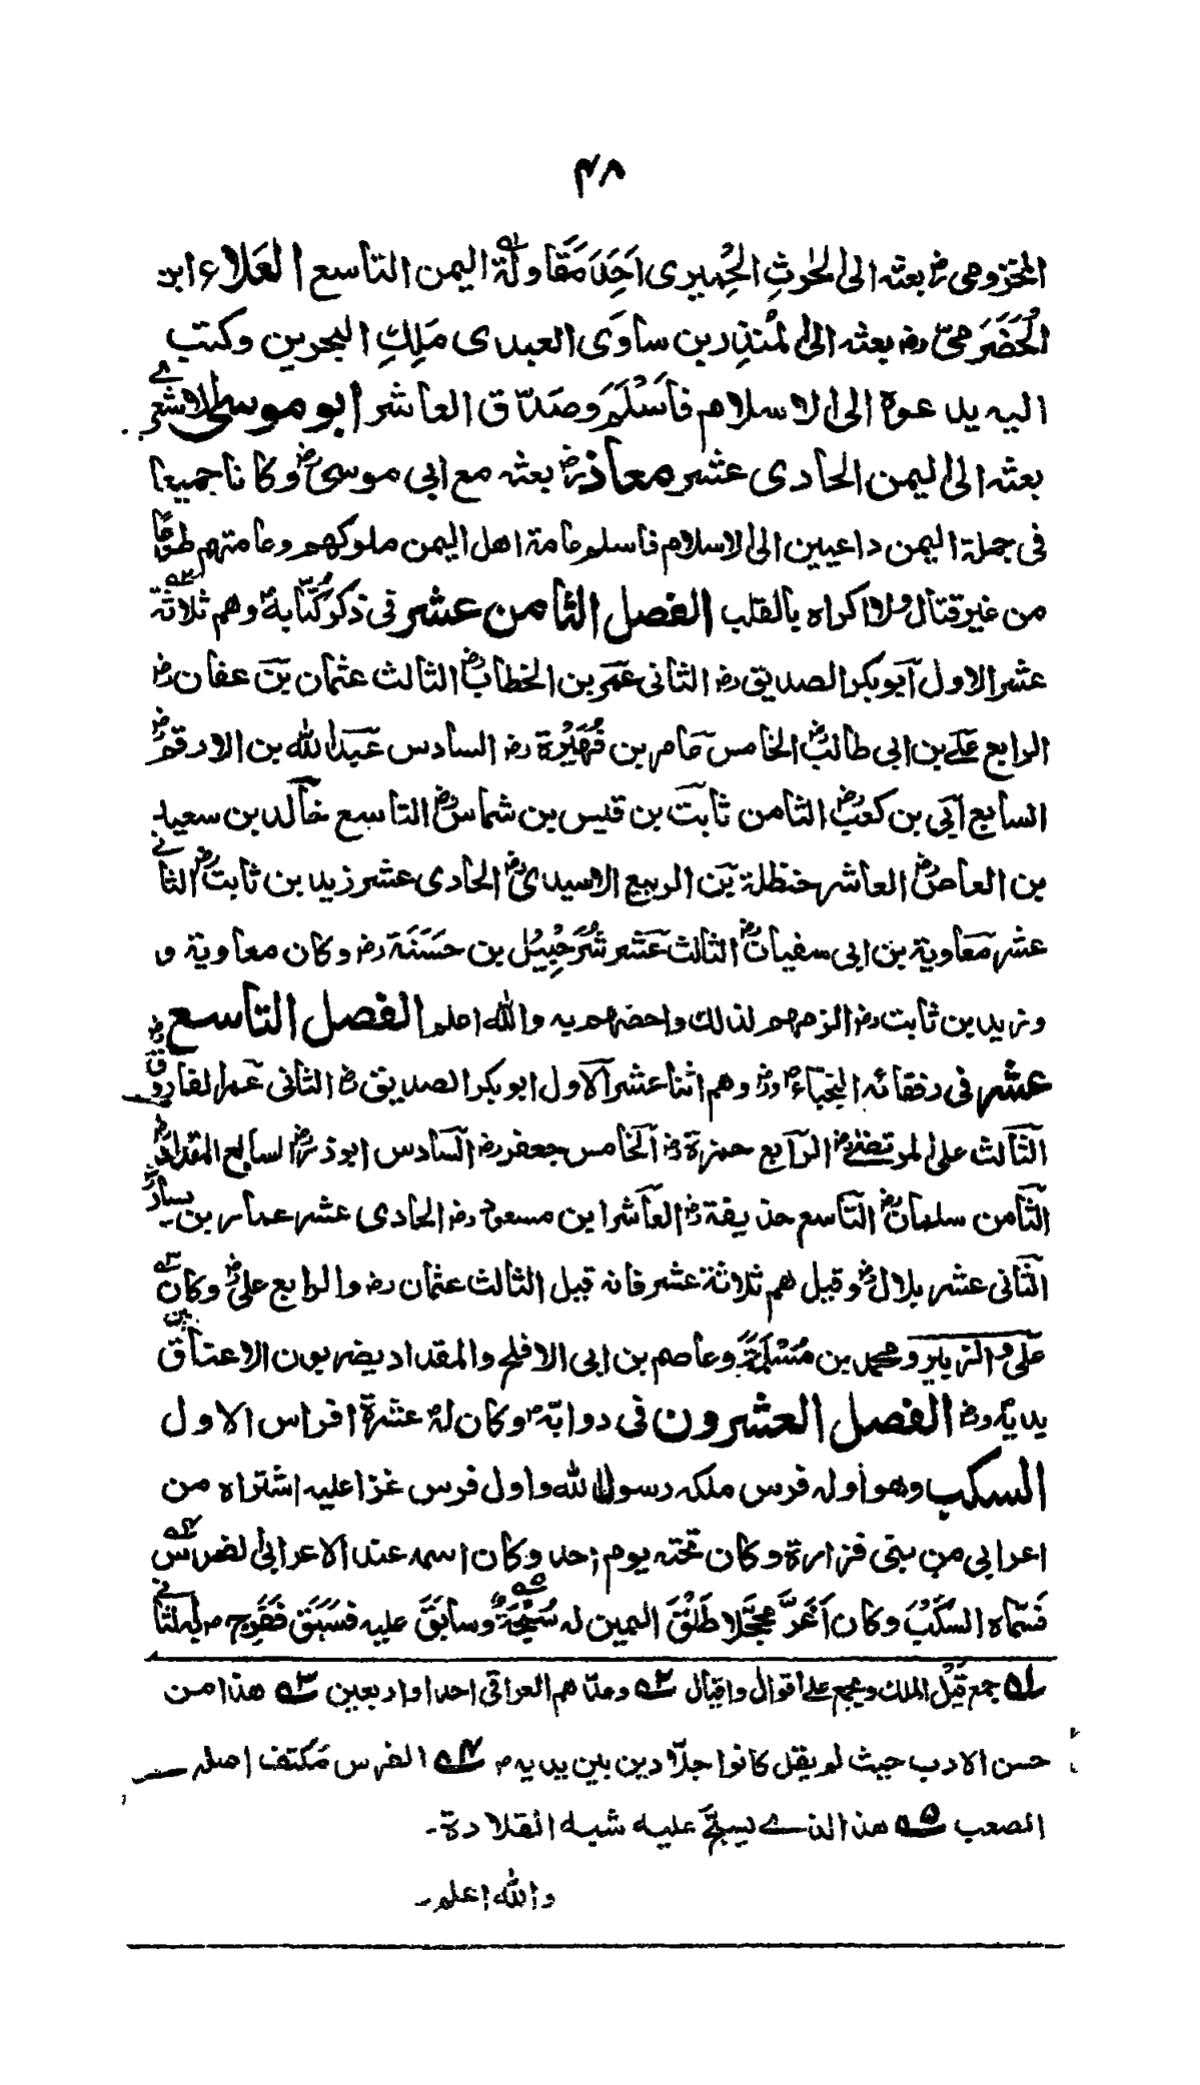 ۴۸
المخزومی رض بعثه الی الحٰرثِ الحِمیری اَحَدَ مَقَاولَة اليمن التاسع العَلاء ابن
الْحَضْرَمیّ رض بعثه الی المُنْذِر بن ساوَی العبدی مَلِكِ البحرين وكتب
اليه يدعوه الی الاسلام فاَسْلَمَ وصَدّق العاشر ابو موسیٰ الاشعرے
بعثه الی اليمن الحادی عشر معاذ رض بعثه مع ابی موسیٰ رض وكانا جميعا
فی جملة اليمن داعيين الی الاسلام فاسلم عامة اهل اليمن ملوكهم وعامتهم طوعًا
من غير قتال ولا اكراه بالقلب الفصل الثامن عشر فی ذكر كُتّابهٖ وهم ثلاثة
عشر الاول ابو بكر الصديق رض الثانی عمر بن الخطاب رض الثالث عثمان بن عفان رض
الرابع علے بن ابی طالب رض الخامس عامر بن فُهَيْرَة رض السادس عبد الله بن الارقم رض
السابع اُبی بن كعب رض الثامن ثابت بن قيس بن شماس رض التاسع خالد بن سعيد
بن العاص رض العاشر حنظلة بن الربيع الاسيدی رض الحادی عشر زيد بن ثابت رض الثانے
عشر معاوية بن ابی سفيان رض الثالث عشر شُرَحْبِيْل بن حَسَنَة رض وكان معاوية و
وزيد بن ثابت رض الزمهم لذلك واخصهم به والله اعلم الفصل التاسع
عشر فی رفقائه النجباء رض وهم اثنا عشر الاول ابو بكر الصديق رض الثانی عمر الفاروق رض
الثالث علی المرتضیٰ رض الرابع حمزة رض الخامس جعفر رض السادس ابو ذر رض السابع المقداد رض
الثامن سلمان رض التاسع حذيفة رض العاشر ابن مسعود رض الحادی عشر عمار بن ياسر رض
الثانی عشر بلال رض وقيل هم ثلاثة عشر فانه قيل الثالث عثمان رض والرابع علی رض وكان
علی والزبير ومحمد بن مَسْلَمَةَ وعاصم بن ابی الافلح والمقداد يضربون الاعناق بين
يديه رض الفصل العشرون فی دوابّه وكان لهٗ عشرة افراس الاول
السكب وهو اوله فرس ملكه رسول الله واول فرس غزا عليه اشتراه من
اعرابی من بنی فزارة وكان تحته يوم احد وكان اسمه عند الاعرابی الضرس
فسَمّاه السَكْبَ وكان اَغَرَّ مُحَجَّلا طَلْقَ اليمين له سُبْحَةٌ وسابَقَ عليه فسَبَقَ ففَرِح به الثانے
ــه۱ جمع قَيْل الملك ويجمع علی اقوال واقيال ــه۲ وعدّاهم العراقی احدا واربعين ــه۳ هذا من
حسن الادب حيث لم يقل كانوا جلّادين بين يديه ــه۴ الضرس مَكَتف اصله
الصعب ــه۵ هذا الذے يسبح عليه شبه القلادة۔
والله اعلم۔